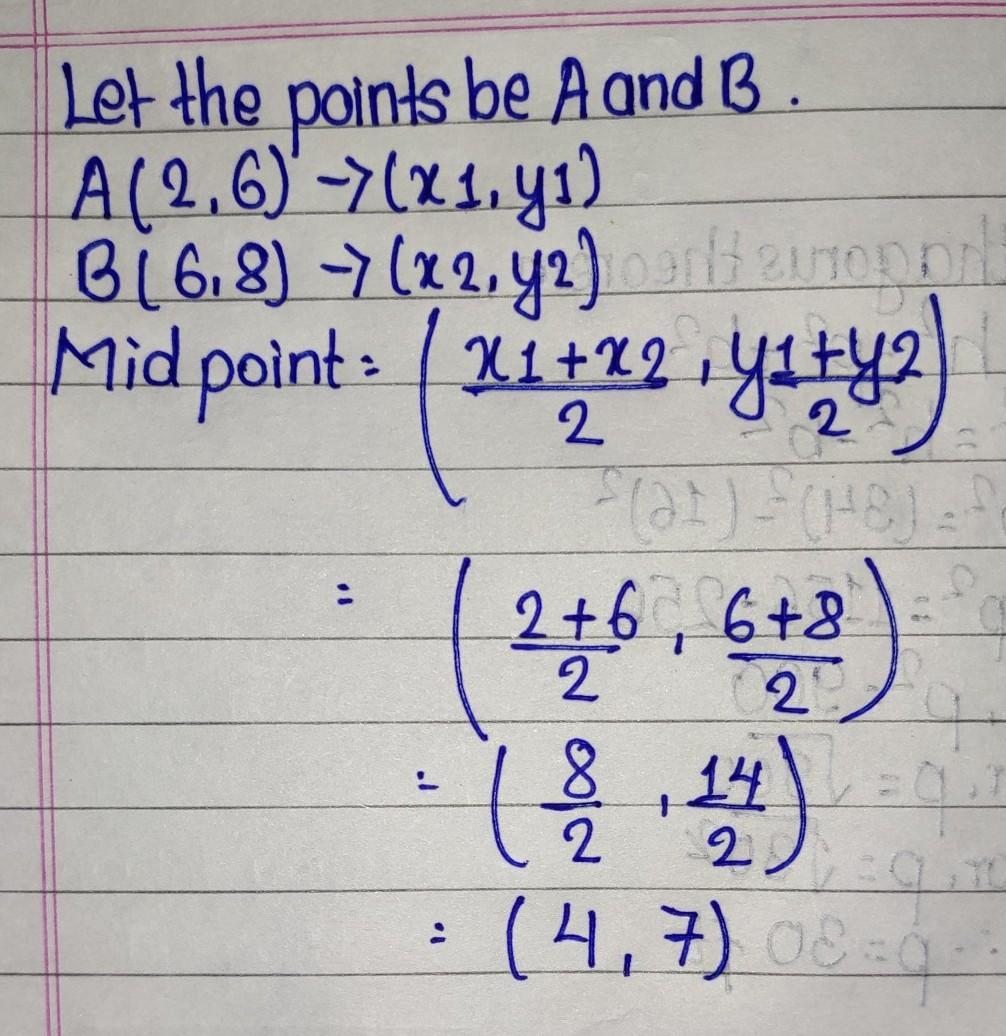 Let the points be A and B.
A(2,6) → (x1, y1)
B(6,8) → (x2, y2)
Mid point = (x1+x2/2, y1+y2/2)
= (2+6/2, 6+8/2)
= (8/2, 14/2)
= (4, 7)